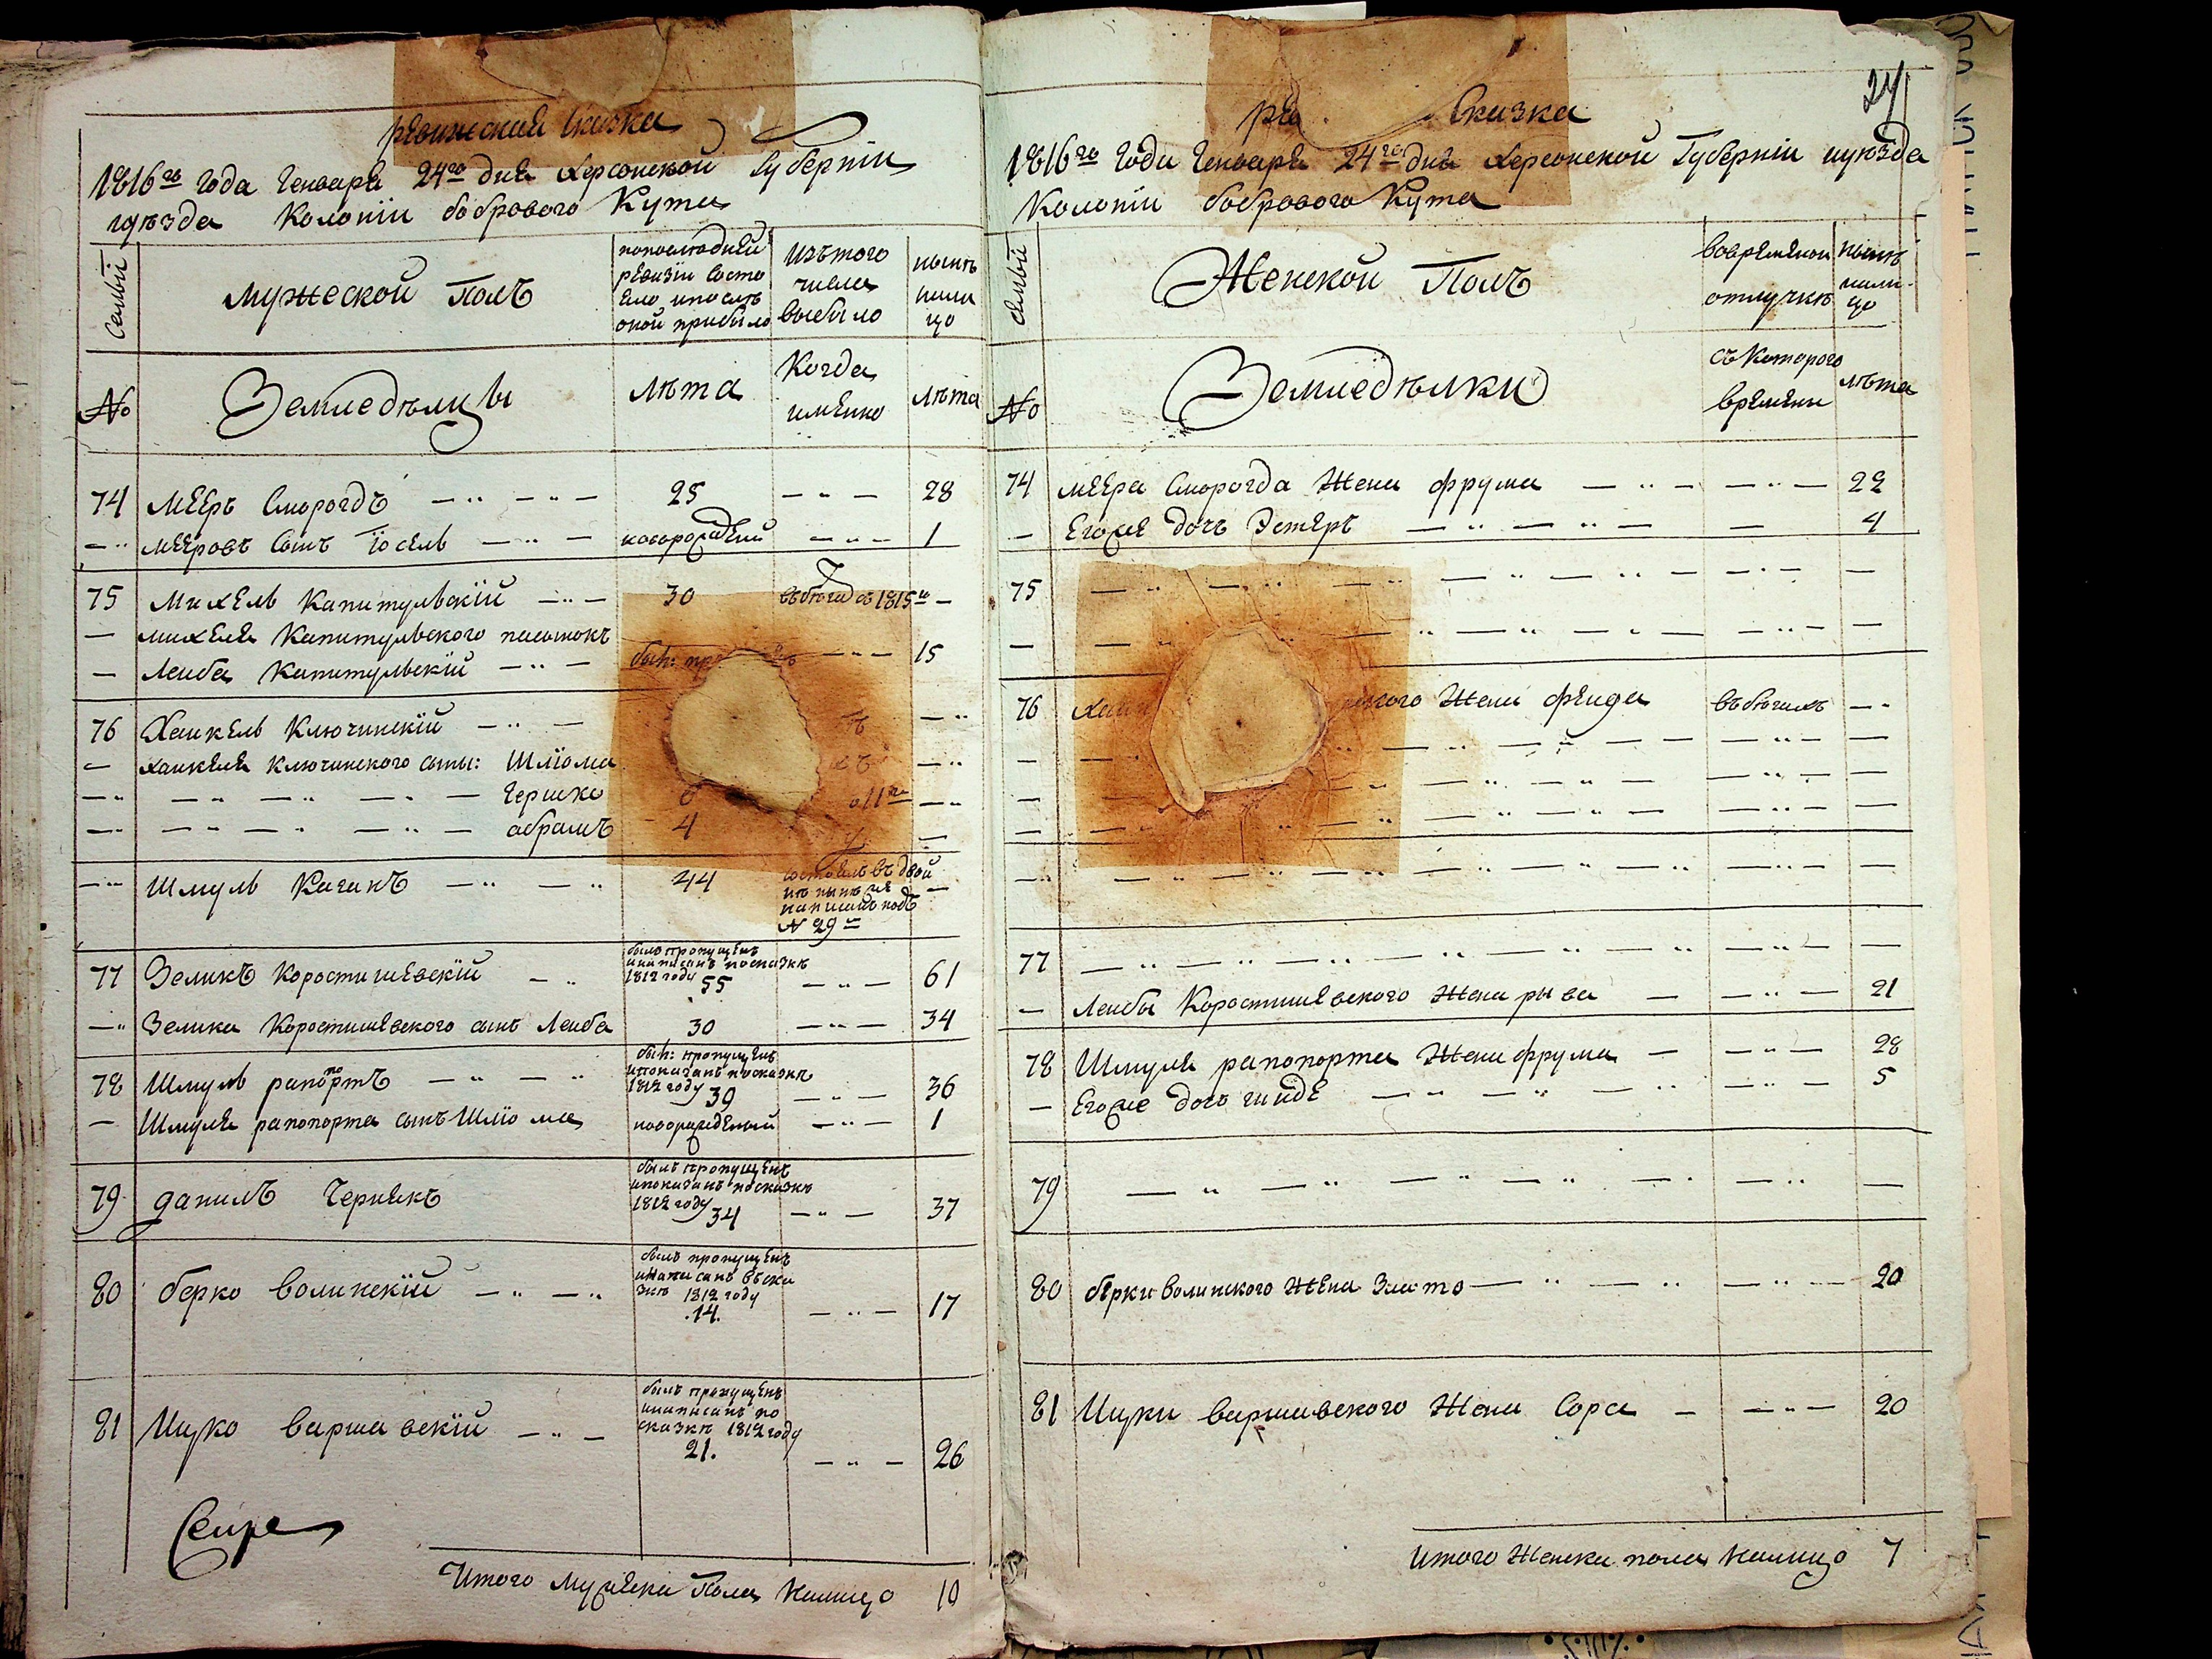 ревижская сказка
1816го года Генваря 24го дня Херсонской Губерніи
уѣзда Колоніи бобрового Кута
Семьи
мужеской Полъ
попоследней ревизіи состояло ипослѣ оной прибыло
Изътого числа выбыло
нынѣ налицо
№
Земледѣльцы
лѣта
Когда имѣнно
лѣта
74 Мееръ Смороздъ 25 28
Мееровъ Сынъ Іосель новорожденй 1
75 Михель Капитульскій 30 въбѣгах съ 1815го
михеля Капитульского пасынокъ
Лейба Капитульскій был: 15
76 Хаикель Ключинскій
хаикеля Ключинского сыны: Шліома
Гершко 11го
абрамъ 4
Шмуль Каганъ 44 состоялъ въ двойнѣ нынѣ же написанъ подъ № 29м
77 Зеликъ Коростишевскій былъ пропущенъ инаписанъ посказкѣ 1812 году 55 61
Зелика Коростишевского сынъ Лейба 30 34
78 Шмуль рапопортъ был: пропущенъ ипоказанъ посказкѣ 1812 году 39 36
Шмуля рапопорта сынъ Шліома новорожденый 1
79 данилъ Чернякъ былъ пропущенъ ипоказанъ посказкѣ 1812 году 34 37
80 берко волинскій былъ пропущенъ инаписанъ въсказкѣ 1812 году .14. 17
81 Ицко варшавскій былъ пропущенъ инаписанъ посказкѣ 1812 году 21. 26
Итого Мужеска Пола Налицо 10
24
ре Сказка
1816го года Генваря 24го дня Херсонской Губерніи иуѣзда
Колоніи бобрового Кута
Семьи
Женской Полъ
вовремяной отлучкѣ
нынѣ налицо
№
Земледѣлки
съ Которого времяни
лѣта
74 меера Смерозда Жена фрума 22
Егоже дочь Эстеръ 4
75
76 Хаик ского Жена фейда въбѣгахъ
77
Лейбы Коростишевского Жена рыва 21
78 Шмуля рапопорта Жена фрума 28
Егоже дочь гинде 5
79
80 берки волинского Жена Злато 20
81 Ицки варшавского Жена Сора 20
Итого Женска пола Налицо 7